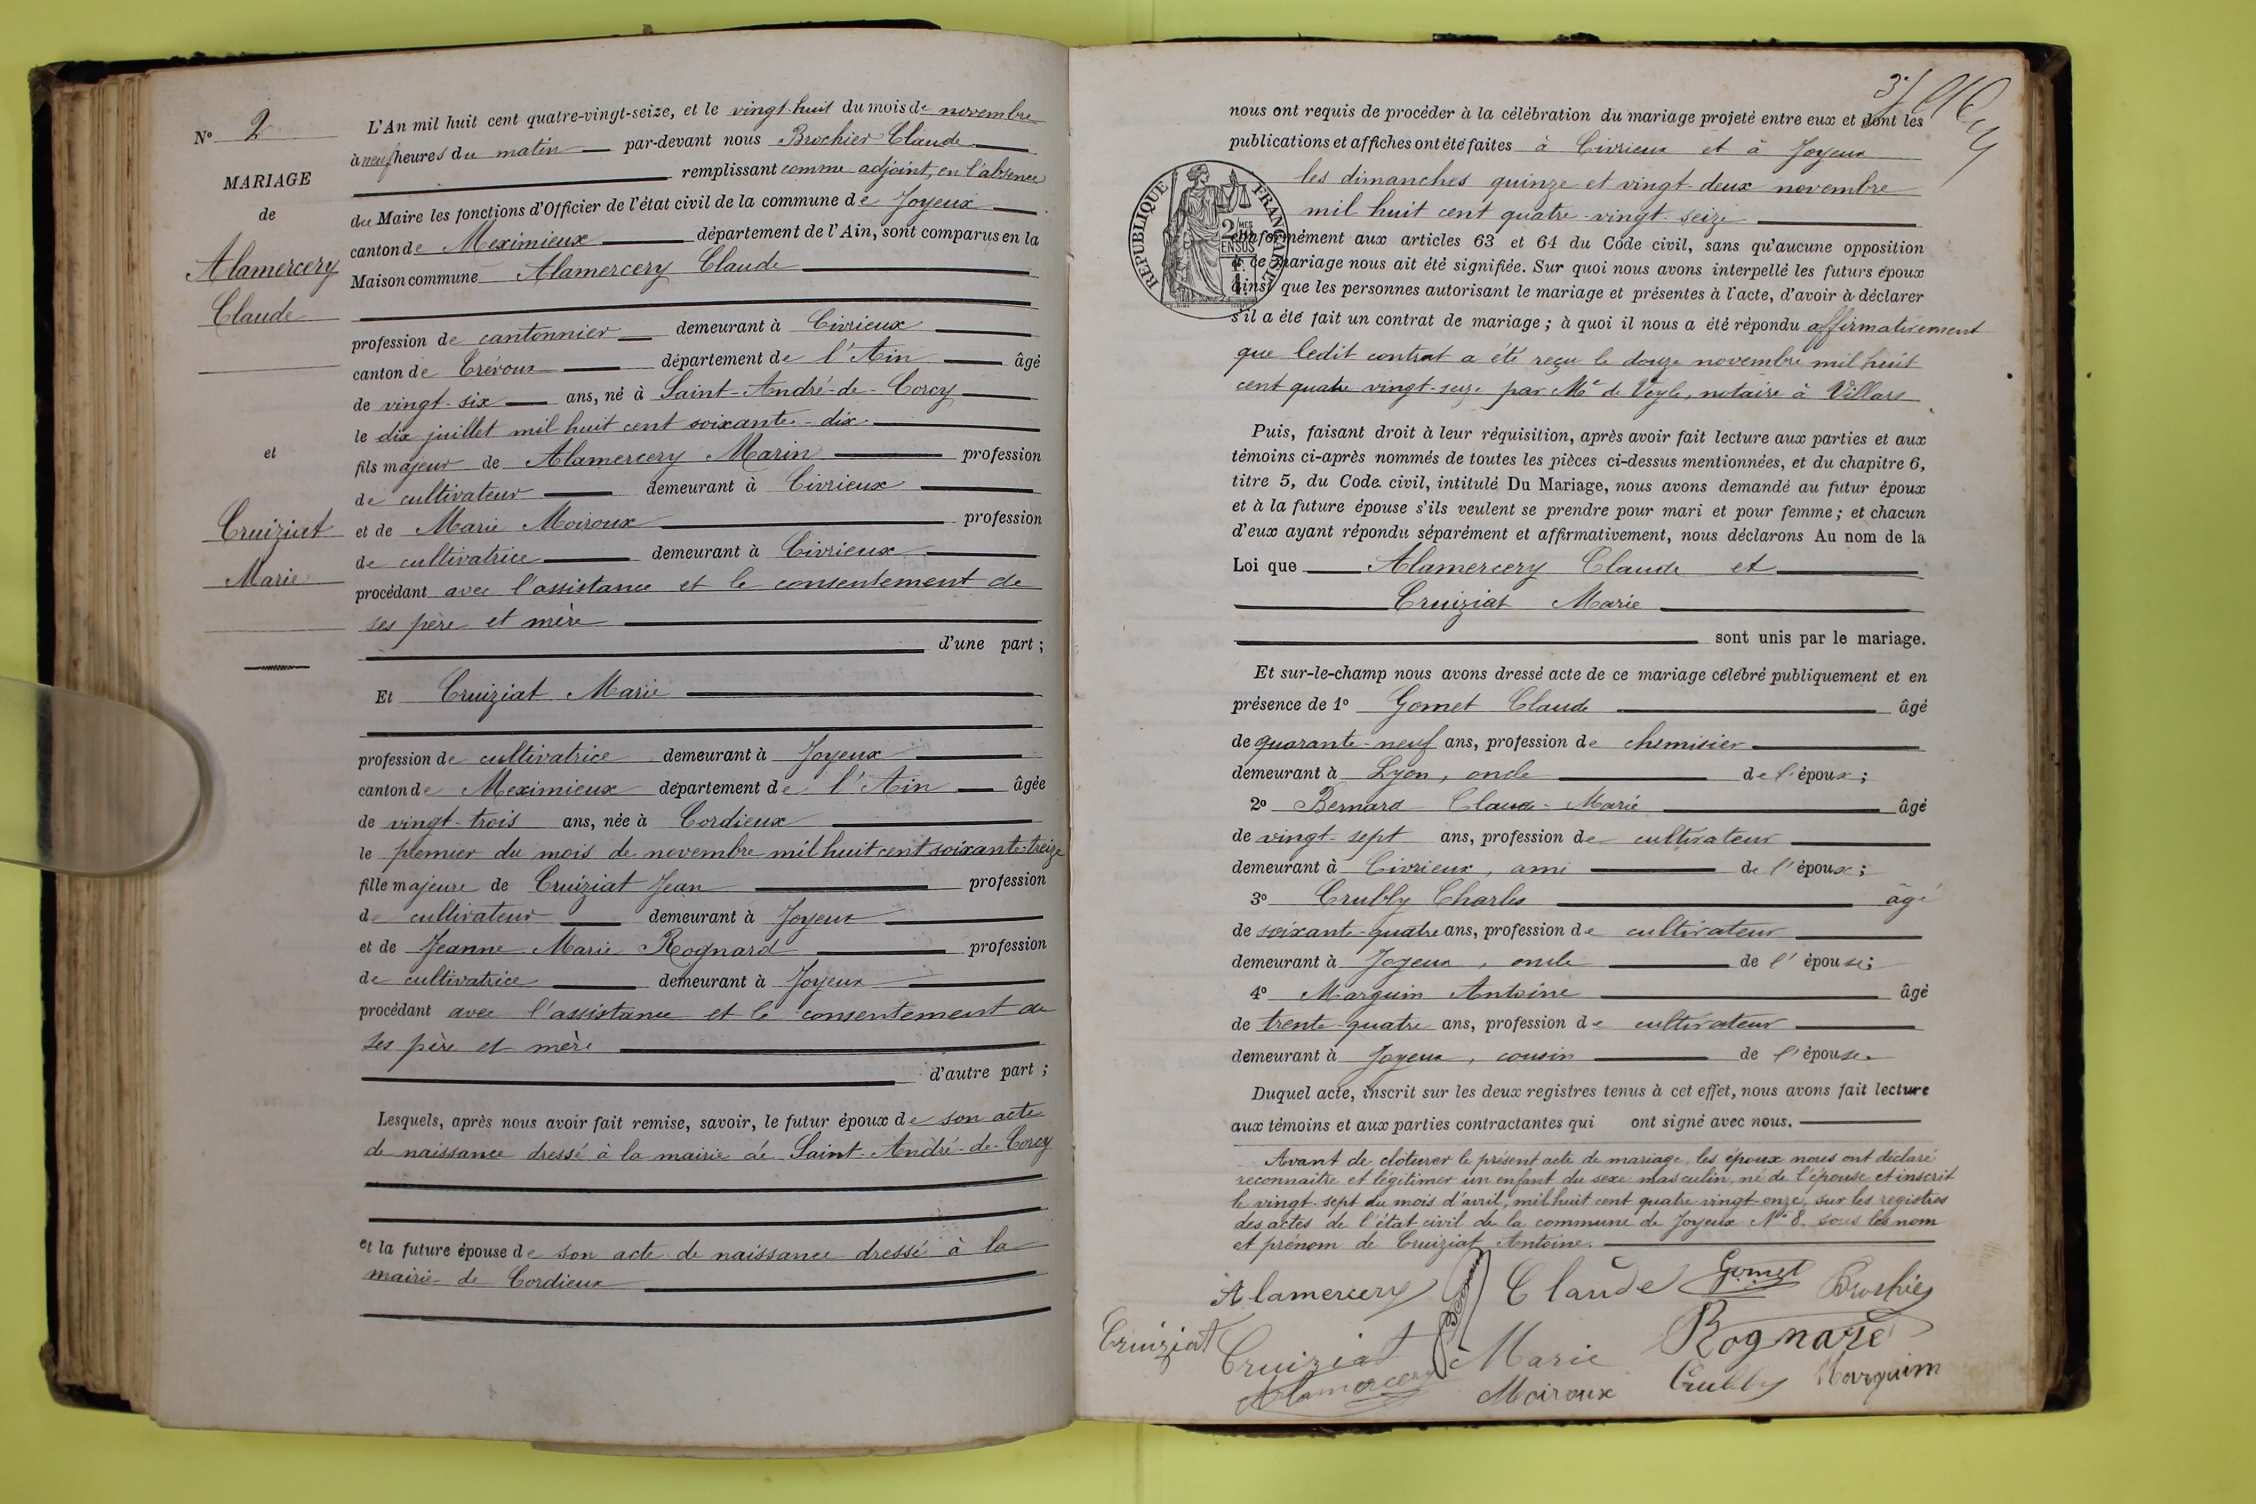 N° 2
MARIAGE
de
Alamercery
Claude
et
Cruiziat
Marie
L'An mil huit cent quatre-vingt-seize, et le vingt-huit du mois de novembre
à neuf heures du matin par-devant nous Brochier Claude
remplissant comme adjoint, en l'absence
du Maire les fonctions d'Officier de l'état civil de la commune de Joyeux
canton de Meximieux département de l'Ain, sont comparus en la
Maison commune Alamercery Claude
profession de cantonnier demeurant à Civrieux
canton de Trévoux département de l'Ain âgé
de vingt-six ans, né à Saint-André-de-Corcy
le dix juillet mil huit cent soixante-dix
fils majeur de Alamercery Marin profession
de cultivateur demeurant à Civrieux
et de Marie Moiroux profession
de cultivatrice demeurant à Civrieux
procédant avec l'assistance et le consentement de
ses père et mère
d'une part ;
Et Cruiziat Marie
profession de cultivatrice demeurant à Joyeux
canton de Meximieux département de l'Ain âgée
de vingt-trois ans, née à Cordieux
le premier du mois de novembre mil huit cent soixante-treize
fille majeure de Cruiziat Jean profession
de cultivateur demeurant à Joyeux
et de Jeanne Marie Rognard profession
de cultivatrice demeurant à Joyeux
procédant avec l'assistance et le consentement de
ses père et mère
d'autre part ;
Lesquels, après nous avoir fait remise, savoir, le futur époux de son acte
de naissance dressé à la mairie de Saint-André-de-Corcy
et la future épouse de son acte de naissance dressé à la
mairie de Cordieux
nous ont requis de procéder à la célébration du mariage projeté entre eux et dont les
publications et affiches ont été faites à Civrieux et à Joyeux
les dimanches quinze et vingt-deux novembre
mil huit cent quatre-vingt-seize
RÉPUBLIQUE FRANÇAISE
conformément aux articles 63 et 64 du Code civil, sans qu'aucune opposition
à ce mariage nous ait été signifiée. Sur quoi nous avons interpellé les futurs époux
ainsi que les personnes autorisant le mariage et présentes à l'acte, d'avoir à déclarer
s'il a été fait un contrat de mariage ; à quoi il nous a été répondu affirmativement
que ledit contrat a été reçu le douze novembre mil huit
cent quatre vingt-seize par Me de Veyle, notaire à Villars
Puis, faisant droit à leur réquisition, après avoir fait lecture aux parties et aux
témoins ci-après nommés de toutes les pièces ci-dessus mentionnées, et du chapitre 6,
titre 5, du Code civil, intitulé Du Mariage, nous avons demandé au futur époux
et à la future épouse s'ils veulent se prendre pour mari et pour femme ; et chacun
d'eux ayant répondu séparément et affirmativement, nous déclarons Au nom de la
Loi que Alamercery Claude et
Cruiziat Marie
sont unis par le mariage.
Et sur-le-champ nous avons dressé acte de ce mariage célébré publiquement et en
présence de 1° Gomet Claude âgé
de quarante-neuf ans, profession de chemisier
demeurant à Lyon, oncle de l'époux ;
2° Bernard Claude-Marie âgé
de vingt-sept ans, profession de cultivateur
demeurant à Civrieux, ami de l'époux ;
3° Crubly Charles âgé
de soixante-quatre ans, profession de cultivateur
demeurant à Joyeux, oncle de l'épouse ;
4° Marguin Antoine âgé
de trente-quatre ans, profession de cultivateur
demeurant à Joyeux, cousin de l'épouse.
Duquel acte, inscrit sur les deux registres tenus à cet effet, nous avons fait lecture
aux témoins et aux parties contractantes qui ont signé avec nous.
Avant de clôturer le présent acte de mariage, les époux nous ont déclaré
reconnaître et légitimer un enfant du sexe masculin, né de l'épouse et inscrit
le vingt-sept du mois d'avril, mil huit cent quatre-vingt-onze, sur les registres
des actes de l'état civil de la commune de Joyeux N° 8. sous les nom
et prénom de Cruiziat Antoine.
Alamercery Claude Gomet Brochier
Cruiziat Cruiziat Marie Rognard
Alamercery Moiroux Crubly Marguin